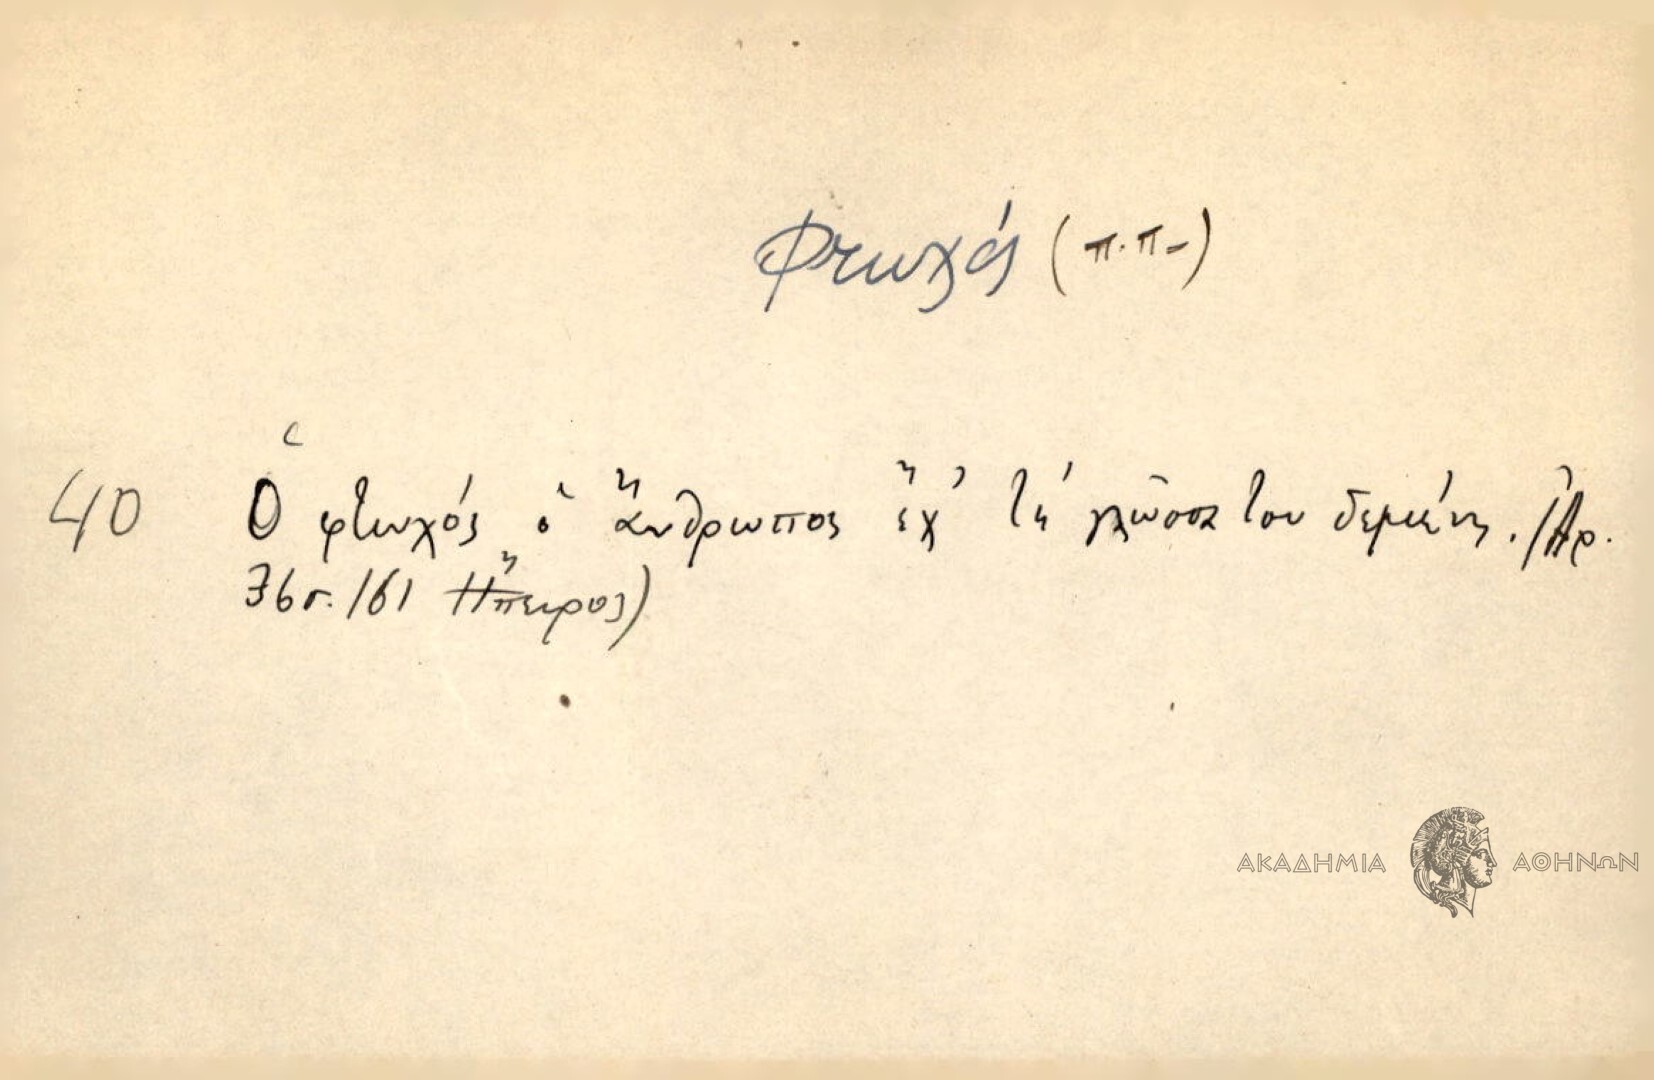 Φτωχός (π.π-)
40 Ὁ φτωχός ὁ ἄνθρωπος ἔχ' τή γλῶσσα του δεμένη. (Ἀρ.
36 σ. 161 Ἤπειρος)
ΑΚΑΔΗΜΙΑ ΑΘΗΝΩΝ